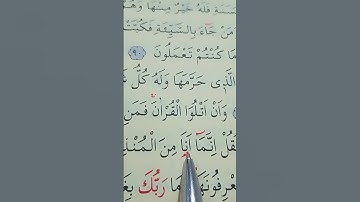 سَنَةِ فَلَهُ خَيْرٌ مِنْهَا وَهُمْ
مَنْ جَٓاءَ بِالسَّيِّئَةِ فَكُبَّتْ
مَا كُنْتُمْ تَعْمَلُونَ ٩٠
الَّذ۪ي حَرَّمَهَا وَلَهُ كُلُّ شَ
وَاَنْ اَتْلُوَا الْقُرْاٰنَ فَمَنِ
فَقُلْ اِنَّمَٓا اَنَا مِنَ الْمُنْذِ
عْرِفُونَهَا مَا رَبُّكَ بِغَ